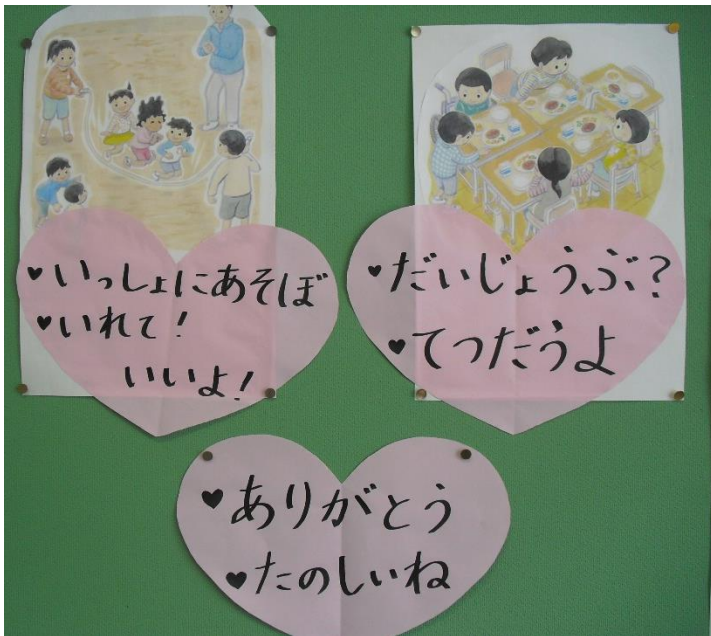 ♥いっしょにあそぼ
♥いれて！
いいよ！
♥だいじょうぶ？
♥てつだうよ
♥ありがとう
♥たのしいね